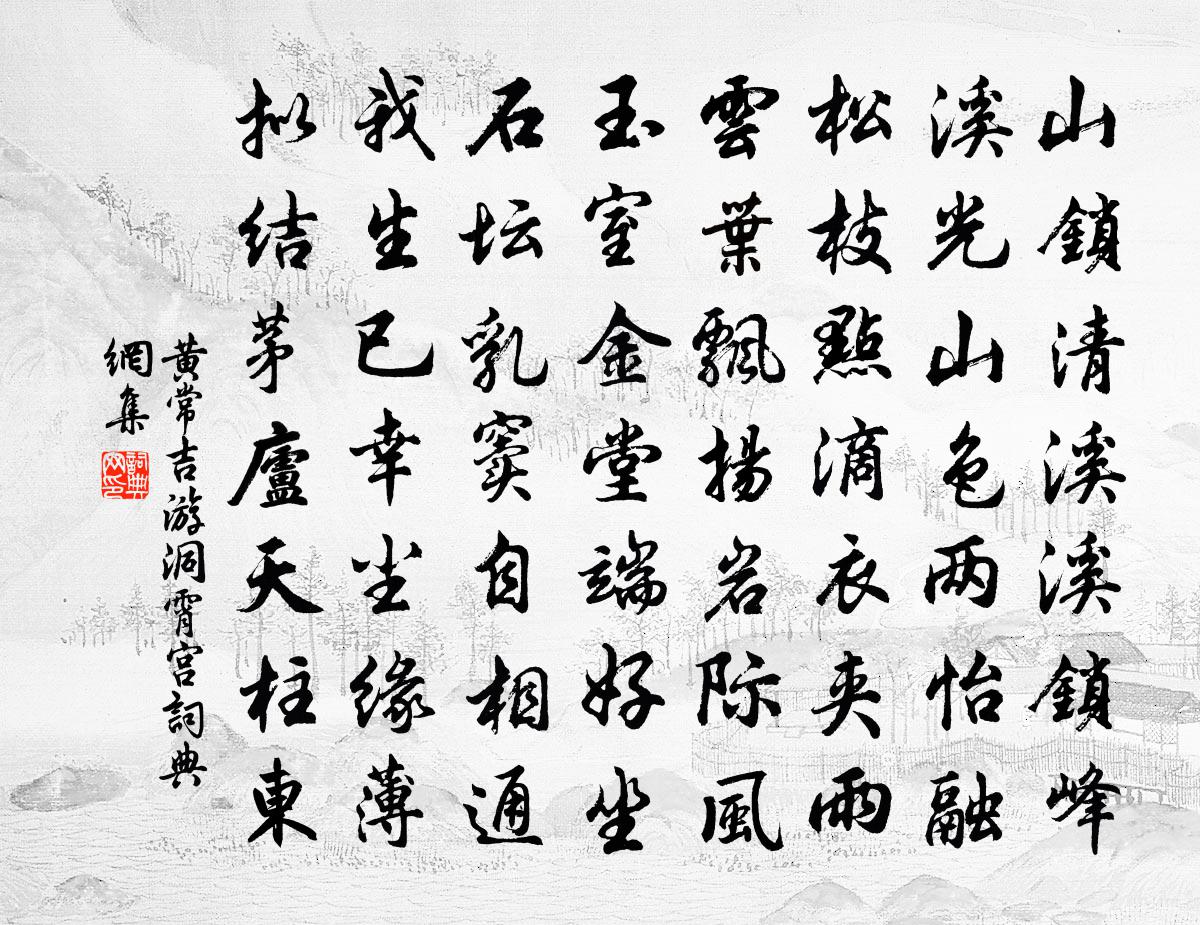 山鎖清溪溪鎖峰
溪光山色两怡融
松枝點滴衣夹雨
雲葉飄揚岩际風
玉室金堂端好坐
石坛乳窦自相通
我生已幸尘缘薄
拟结茅廬天柱東
黄常吉游洞霄宫詞典
網集
詞典
网印